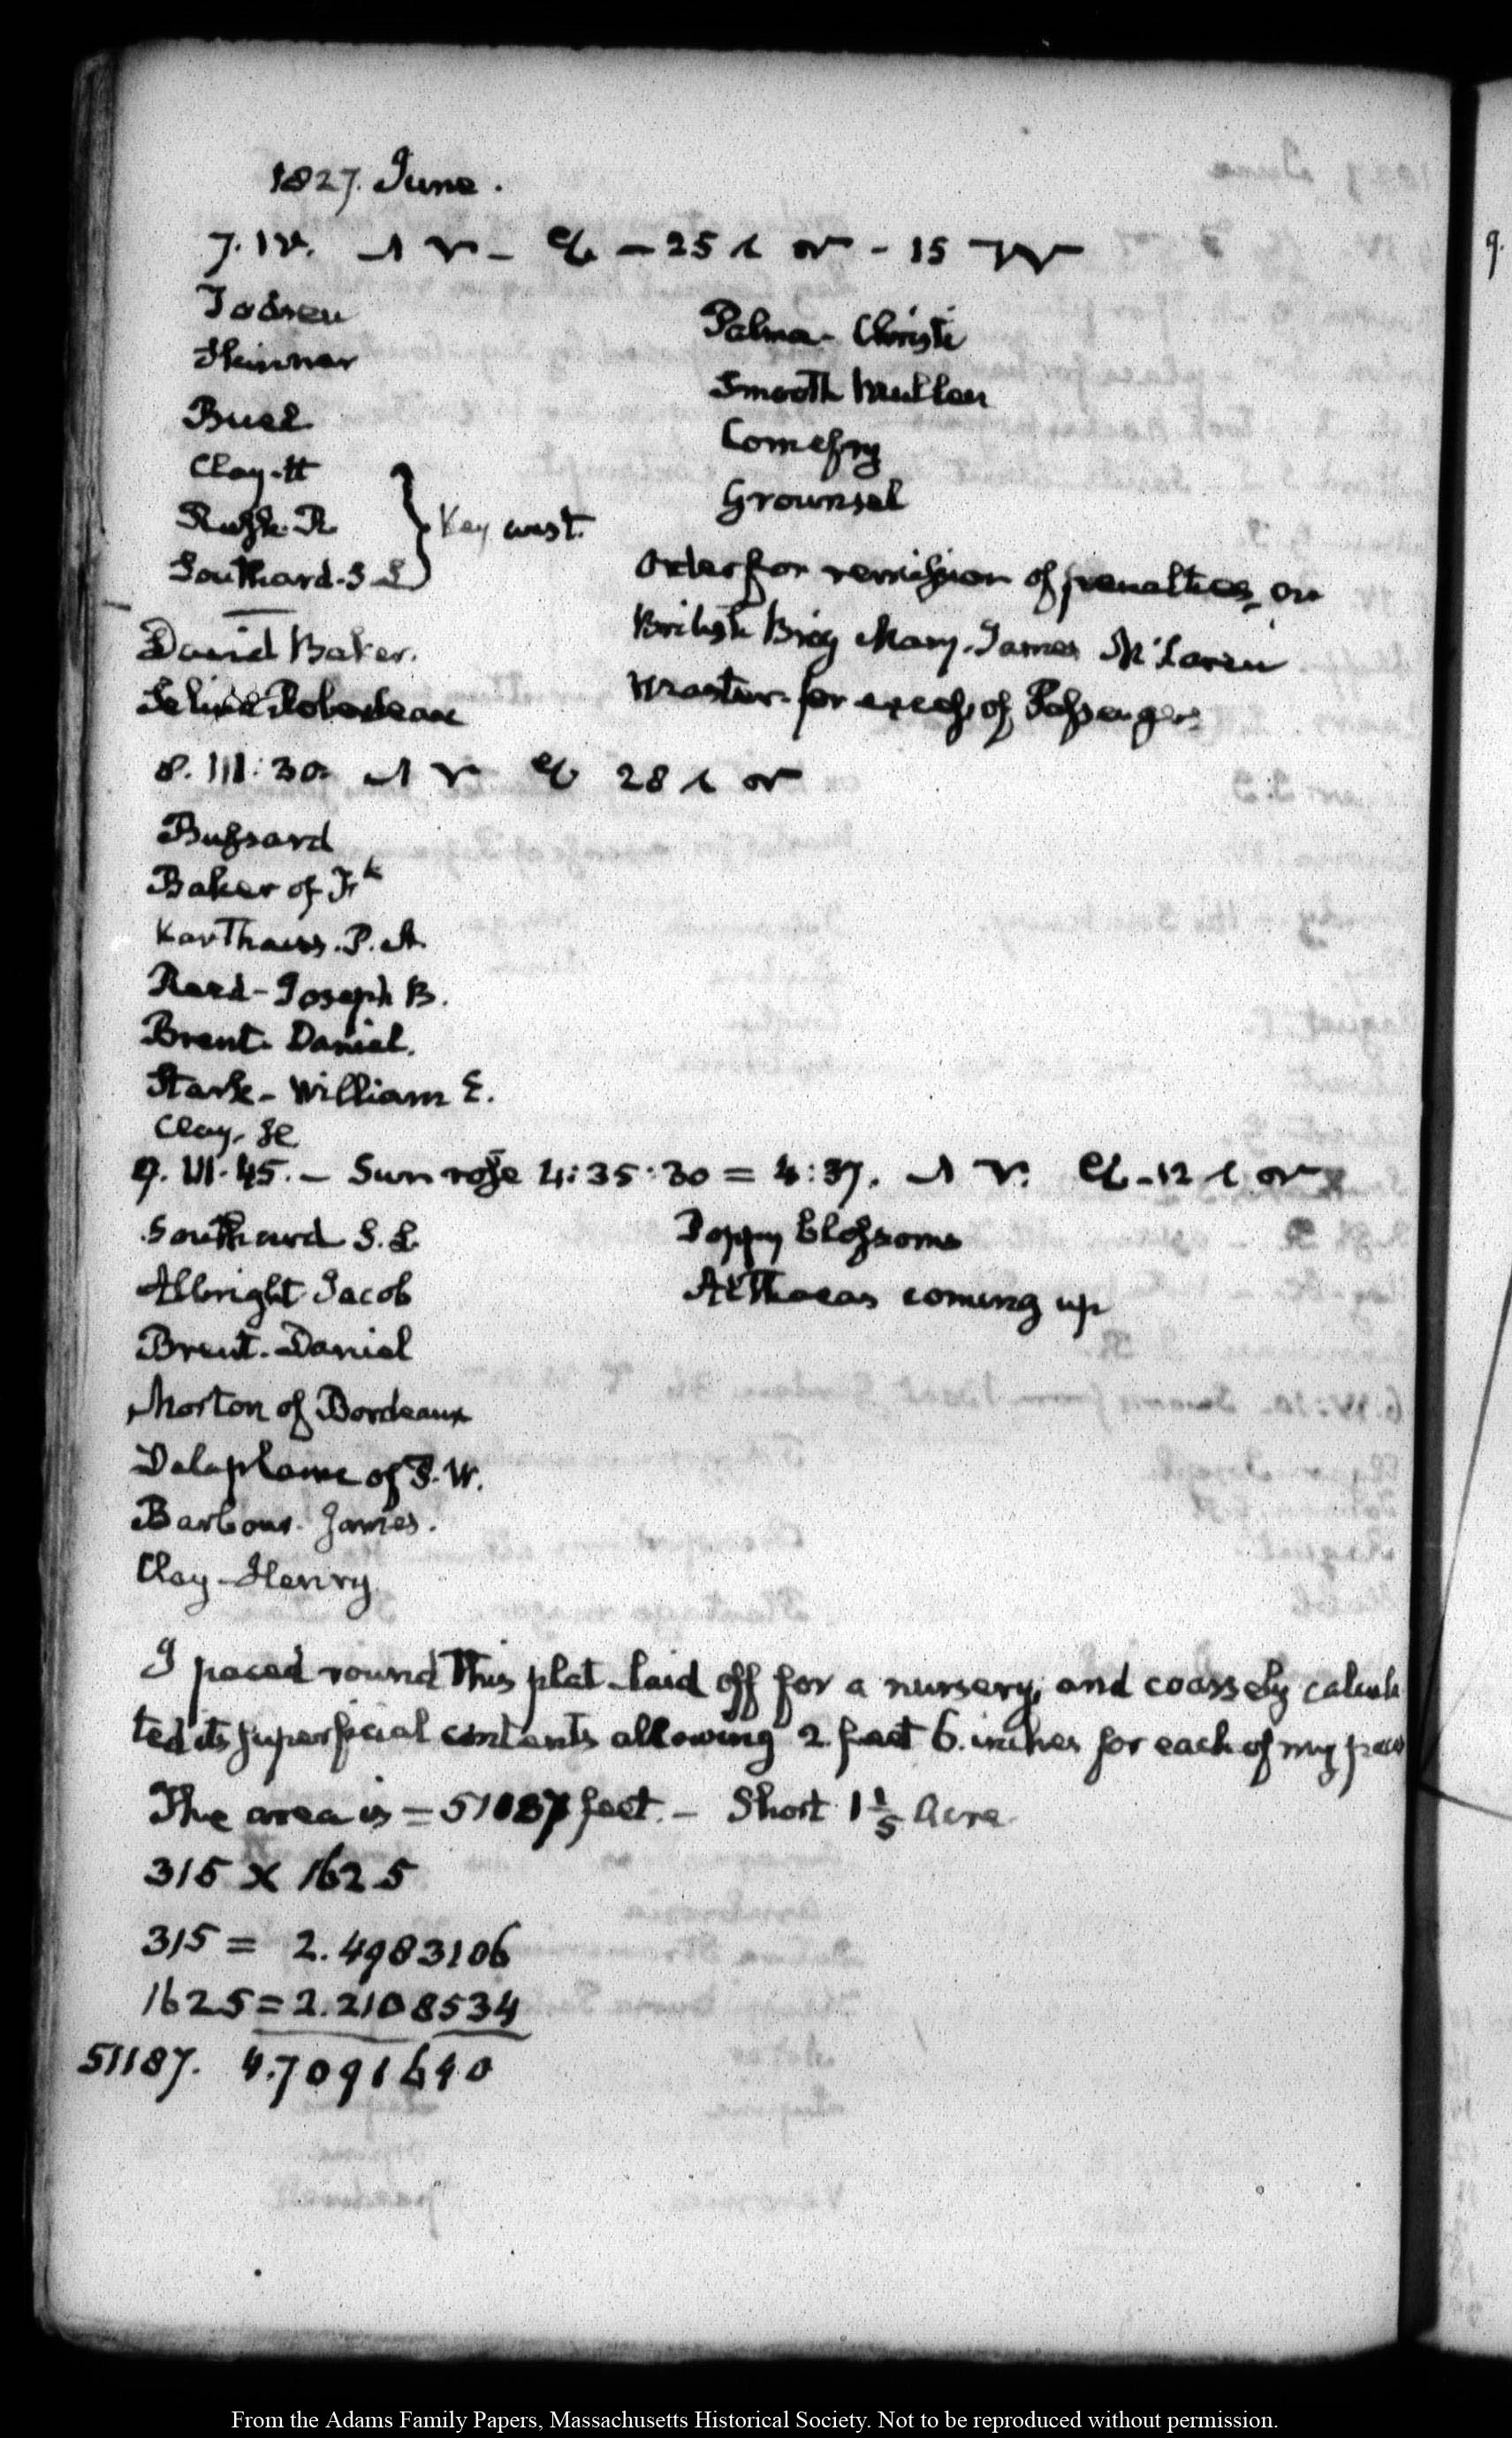 1827. June.
7. IV. — 25 — 15
Todsen
Skinner
Buel
Clay. H
Rush. R
Southard. S L
Key west.
David Baker.
Palma-Christi
Smooth Mullen
Comefry
Grounsel
Order for remission of penalties, on
British Brig Mary. James McLaren
Master. for excess of Passengers
8. III: 30. 28
Bussard
Baker of Frk
Karthaus. P. A.
Read-Joseph B.
Brent. Daniel.
Stark- William E.
Clay, H
9. VI. 45. — Sun rose 4:35:30 = 4:37. 12
Southard S. L.
Albright Jacob
Brent. Daniel
Morton of Bordeaux
Delaplaine of
Barbour. James.
Clay-Henry
Poppy blossoms
Althaeas coming up
I paced round this plat laid off for a nursery, and coarsely calcula
ted its superficial contents allowing 2. feet 6. inches for each of my
The area is = 51187 feet. — Short 1 1/5 Acre
315 x 1625
315 = 2.4983106
1625 = 2.2108534
51187. 4.7091640
From the Adams Family Papers, Massachusetts Historical Society. Not to be reproduced without permission.